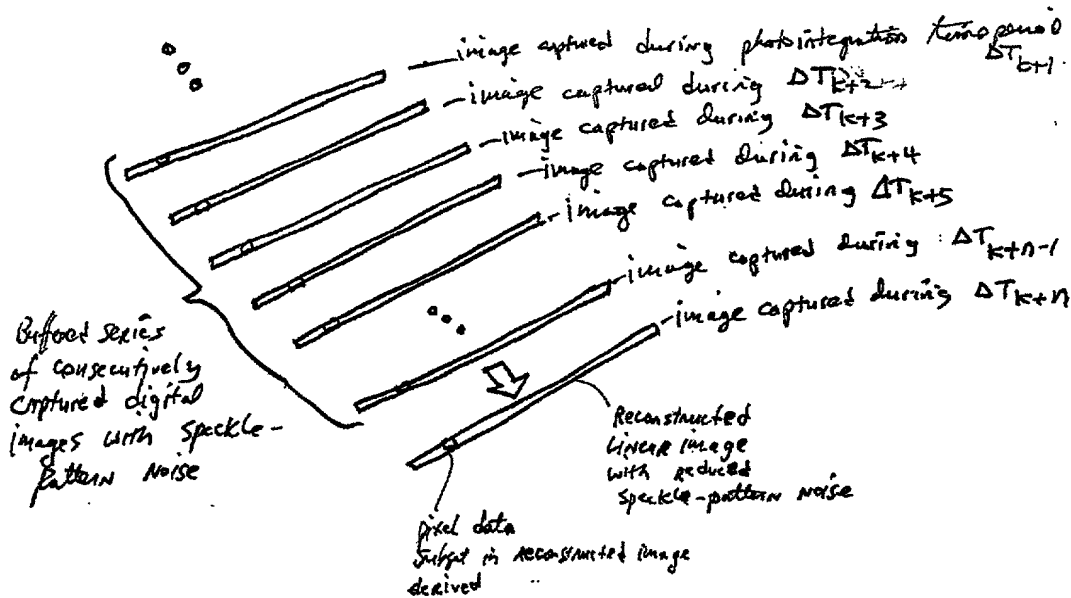 image captured during photointegration time period
ΔTk+1
image captured during ΔTk+2
image captured during ΔTk+3
image captured during ΔTk+4
image captured during ΔTk+5
image captured during ΔTk+n-1
image captured during ΔTk+n
Buffered series
of consecutively
captured digital
images with speckle-
pattern Noise
Reconstructed
Linear image
with reduced
speckle-pattern Noise
pixel data
subset in reconstructed image
derived